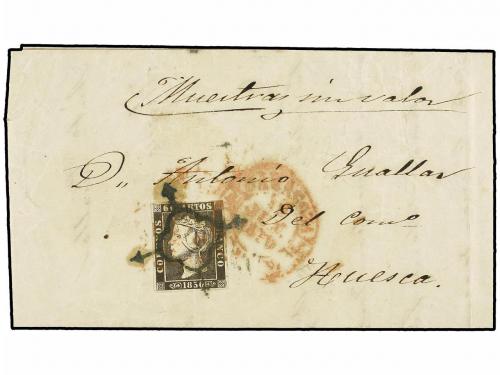 Muestras sin valor
Dn Antonio Guallar
Del como
Huesca.
6 CUARTOS
CORREOS
FRANCO
1850